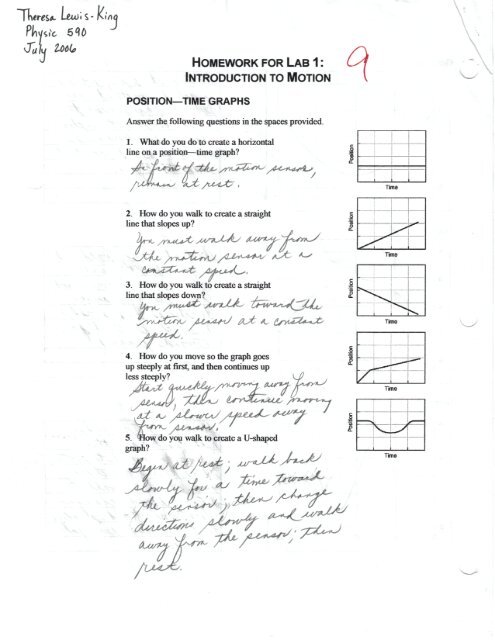 Theresa Lewis-King
Physic 590
July 2006
9
HOMEWORK FOR LAB 1:
INTRODUCTION TO MOTION
POSITION—TIME GRAPHS
Answer the following questions in the spaces provided.
1. What do you do to create a horizontal
line on a position—time graph?
In front of the motion sensor,
remain at rest.
Position
Time
2. How do you walk to create a straight
line that slopes up?
You must walk away from
the motion sensor at a
constant speed.
Position
Time
3. How do you walk to create a straight
line that slopes down?
You must walk toward the
motion sensor at a constant
speed.
Position
Time
4. How do you move so the graph goes
up steeply at first, and then continues up
less steeply?
Start quickly moving away from
sensor, then continue moving
at a slower speed away
from sensor.
Position
Time
5. How do you walk to create a U-shaped
graph?
Begin at rest; walk back
slowly for a time toward
the sensor, then change
directions slowly and walk
away from the sensor; then
rest.
Position
Time